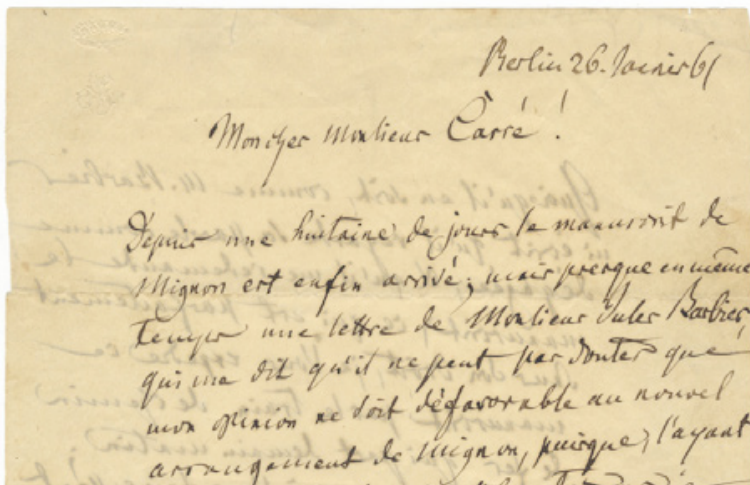 Berlin 26. Janvier 61
Mon cher Monsieur Carré!
Depuis une huitaine de jours le manuscrit de
Mignon est enfin arrivé; mais presque en même
temps une lettre de Monsieur Jules Barbier,
qui me dit qu'il ne peut pas douter que
mon opinion ne soit défavorable au nouvel
arrangement de Mignon, puisque, l'ayant